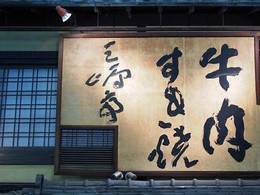 牛肉
すき焼
三嶋亭